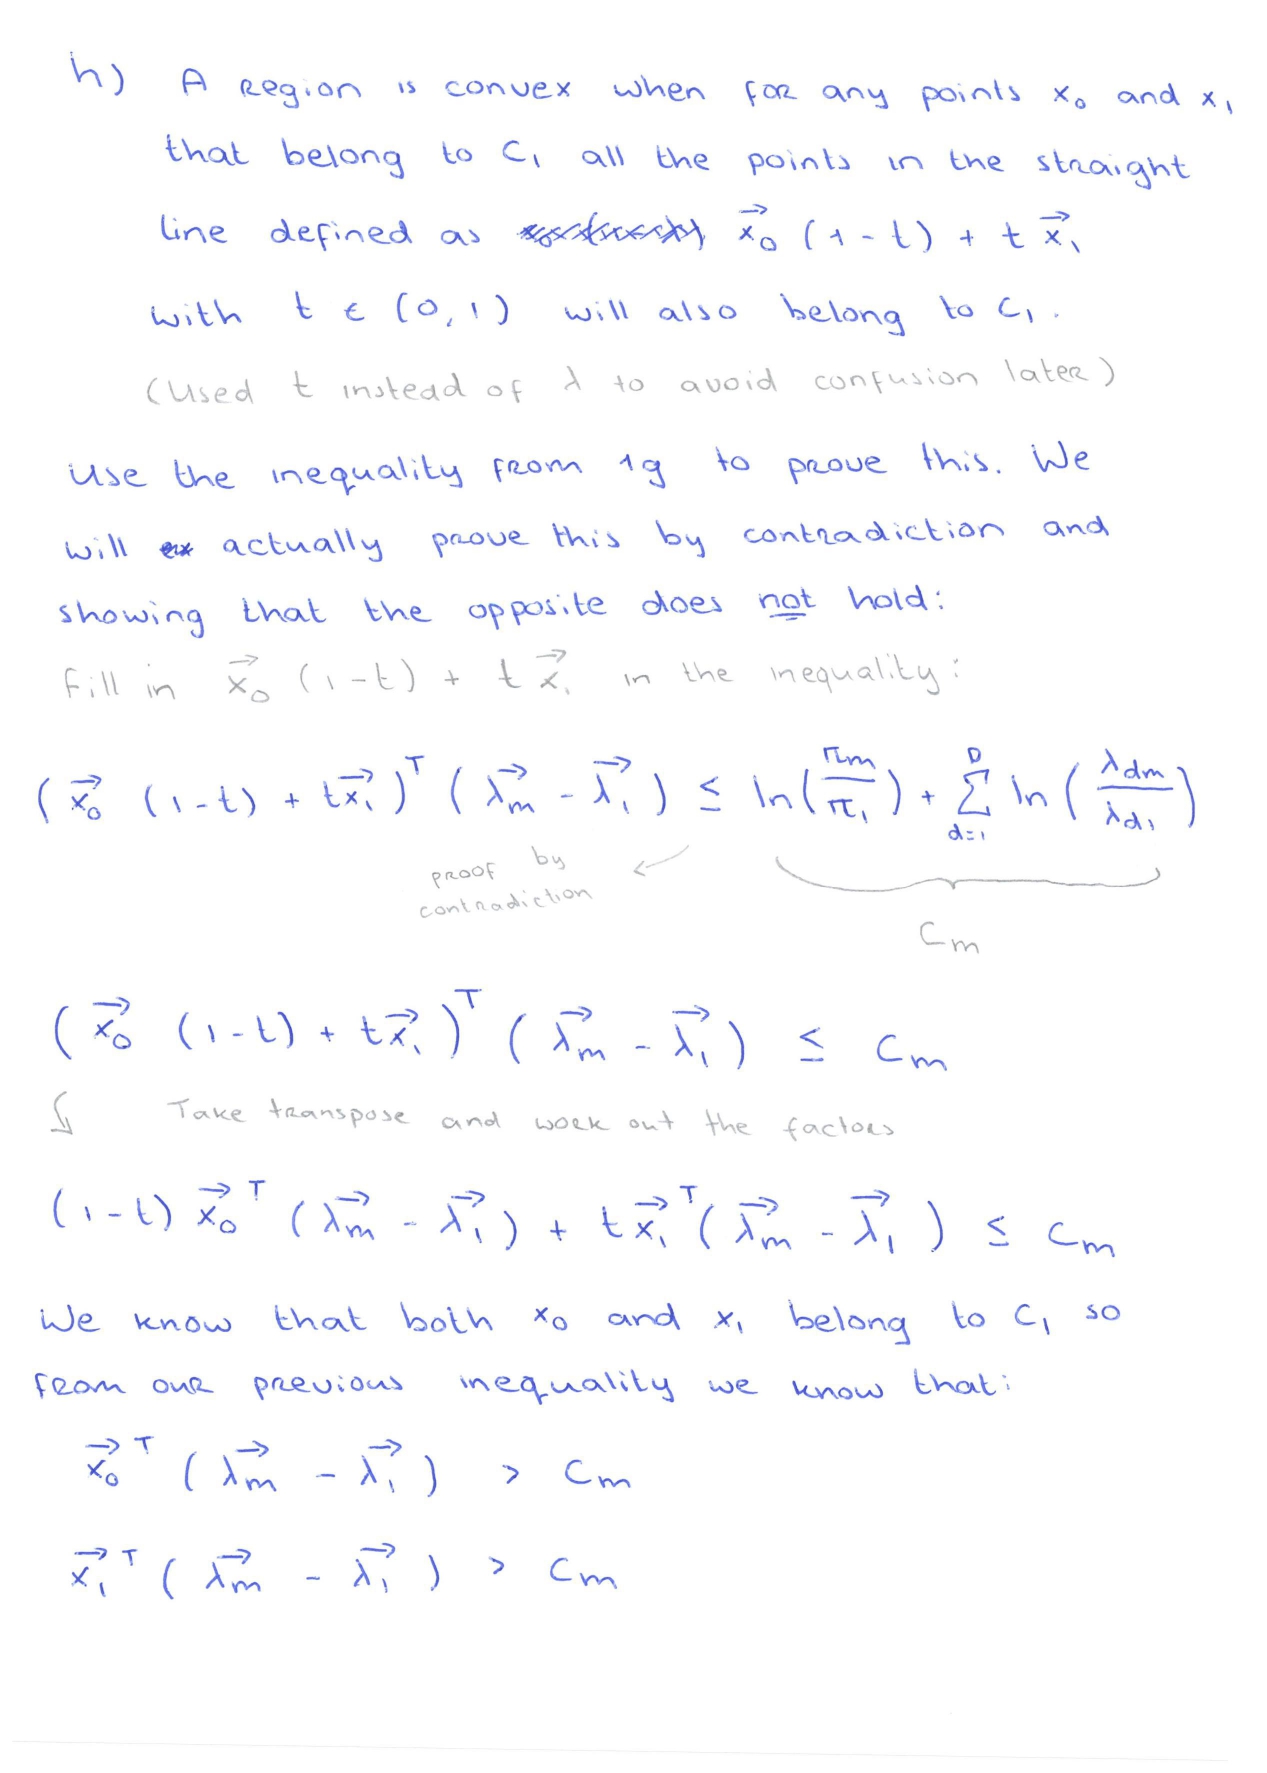 h) A Region is convex when for any points x₀ and x₁
that belong to C₁ all the points in the straight
line defined as x⃗₀ (1-t) + t x⃗₁
with t ∈ (0,1) will also belong to C₁.
(Used t instead of λ to avoid confusion later)
Use the inequality from 1g to prove this. We
will actually prove this by contradiction and
showing that the opposite does not hold:
Fill in x⃗₀ (1-t) + t x⃗₁ in the inequality:
(x⃗₀ (1-t) + t x⃗₁)ᵀ (λ⃗m - λ⃗₁) ≤ ln(πm/π₁) + Σ_{d=1}^{D} ln(λdm/λd₁)
proof by
contradiction
Cm
(x⃗₀ (1-t) + t x⃗₁)ᵀ (λ⃗m - λ⃗₁) ≤ Cm
Take transpose and work out the factors
(1-t) x⃗₀ᵀ (λ⃗m - λ⃗₁) + t x⃗₁ᵀ (λ⃗m - λ⃗₁) ≤ Cm
We know that both x₀ and x₁ belong to C₁ so
from our previous inequality we know that:
x⃗₀ᵀ (λ⃗m - λ⃗₁) > Cm
x⃗₁ᵀ (λ⃗m - λ⃗₁) > Cm